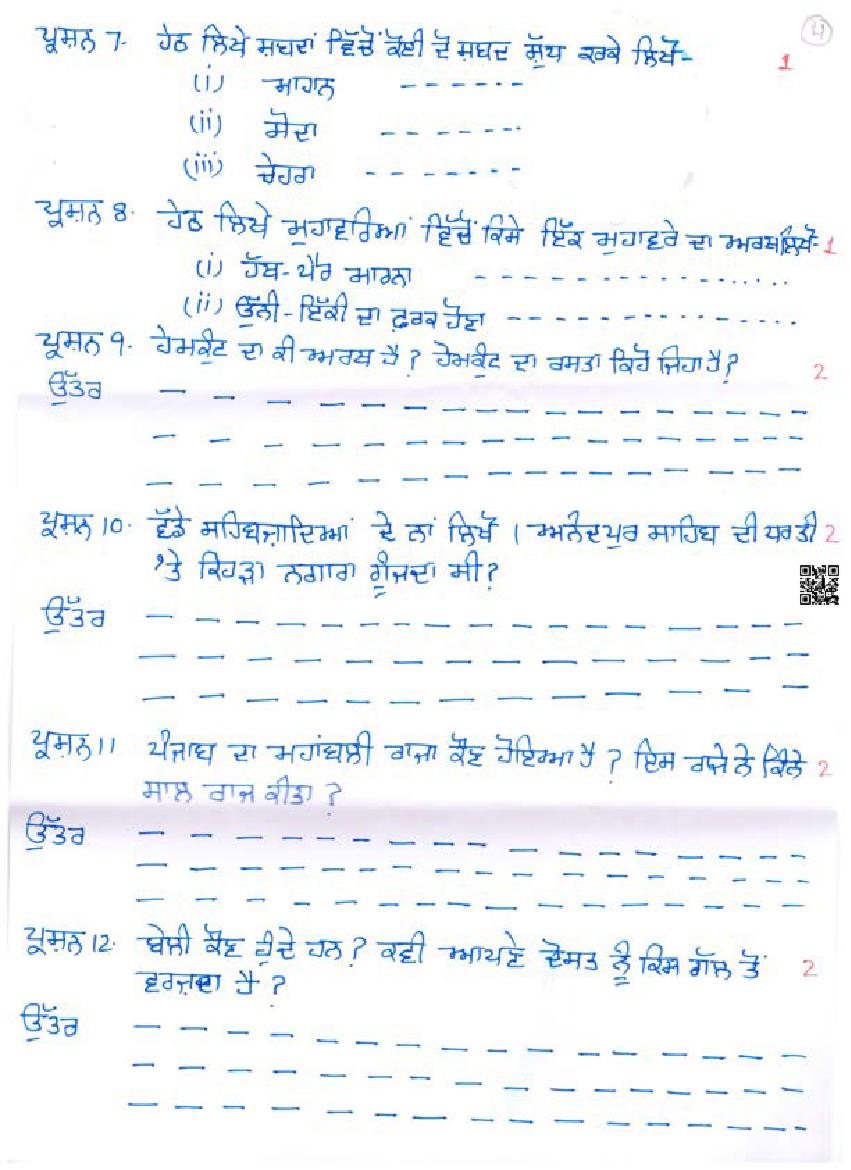 4
ਪ੍ਰਸ਼ਨ 7- ਹੇਠ ਲਿਖੇ ਸ਼ਬਦਾਂ ਵਿੱਚੋਂ ਕੋਈ ਦੋ ਸ਼ਬਦ ਸ਼ੁੱਧ ਕਰਕੇ ਲਿਖੋ- 1
(i) ਮਾਹਨ ------
(ii) ਸੋਦਾ ------
(iii) ਚੇਹਰਾ -------
ਪ੍ਰਸ਼ਨ 8. ਹੇਠ ਲਿਖੇ ਮੁਹਾਵਰਿਆਂ ਵਿੱਚੋਂ ਕਿਸੇ ਇੱਕ ਮੁਹਾਵਰੇ ਦਾ ਅਰਥ ਲਿਖੋ- 1
(i) ਹੱਥ-ਪੈਰ ਮਾਰਨਾ ---------------
(ii) ਉੱਨੀ-ਇੱਕੀ ਦਾ ਫ਼ਰਕ ਹੋਣਾ --------------
ਪ੍ਰਸ਼ਨ 9. ਹੇਮਕੁੰਟ ਦਾ ਕੀ ਅਰਥ ਹੈ? ਹੇਮਕੁੰਟ ਦਾ ਰਸਤਾ ਕਿਹੋ ਜਿਹਾ ਹੈ? 2
ਉੱਤਰ
ਪ੍ਰਸ਼ਨ 10. ਵੱਡੇ ਸਹਿਬਜ਼ਾਦਿਆਂ ਦੇ ਨਾਂ ਲਿਖੋ। ਅਨੰਦਪੁਰ ਸਾਹਿਬ ਦੀ ਧਰਤੀ 2
'ਤੇ ਕਿਹੜਾ ਨਗਾਰਾ ਗੂੰਜਦਾ ਸੀ?
ਉੱਤਰ
ਪ੍ਰਸ਼ਨ 11 ਪੰਜਾਬ ਦਾ ਮਹਾਂਬਲੀ ਰਾਜਾ ਕੌਣ ਹੋਇਆ ਹੈ? ਇਸ ਰਾਜੇ ਨੇ ਕਿੰਨੇ 2
ਸਾਲ ਰਾਜ ਕੀਤਾ?
ਉੱਤਰ
ਪ੍ਰਸ਼ਨ 12. ਬੇਲੀ ਕੌਣ ਹੁੰਦੇ ਹਨ? ਕਵੀ ਆਪਣੇ ਦੋਸਤ ਨੂੰ ਕਿਸ ਗੱਲ ਤੋਂ 2
ਵਰਜ਼ਦਾ ਹੈ?
ਉੱਤਰ